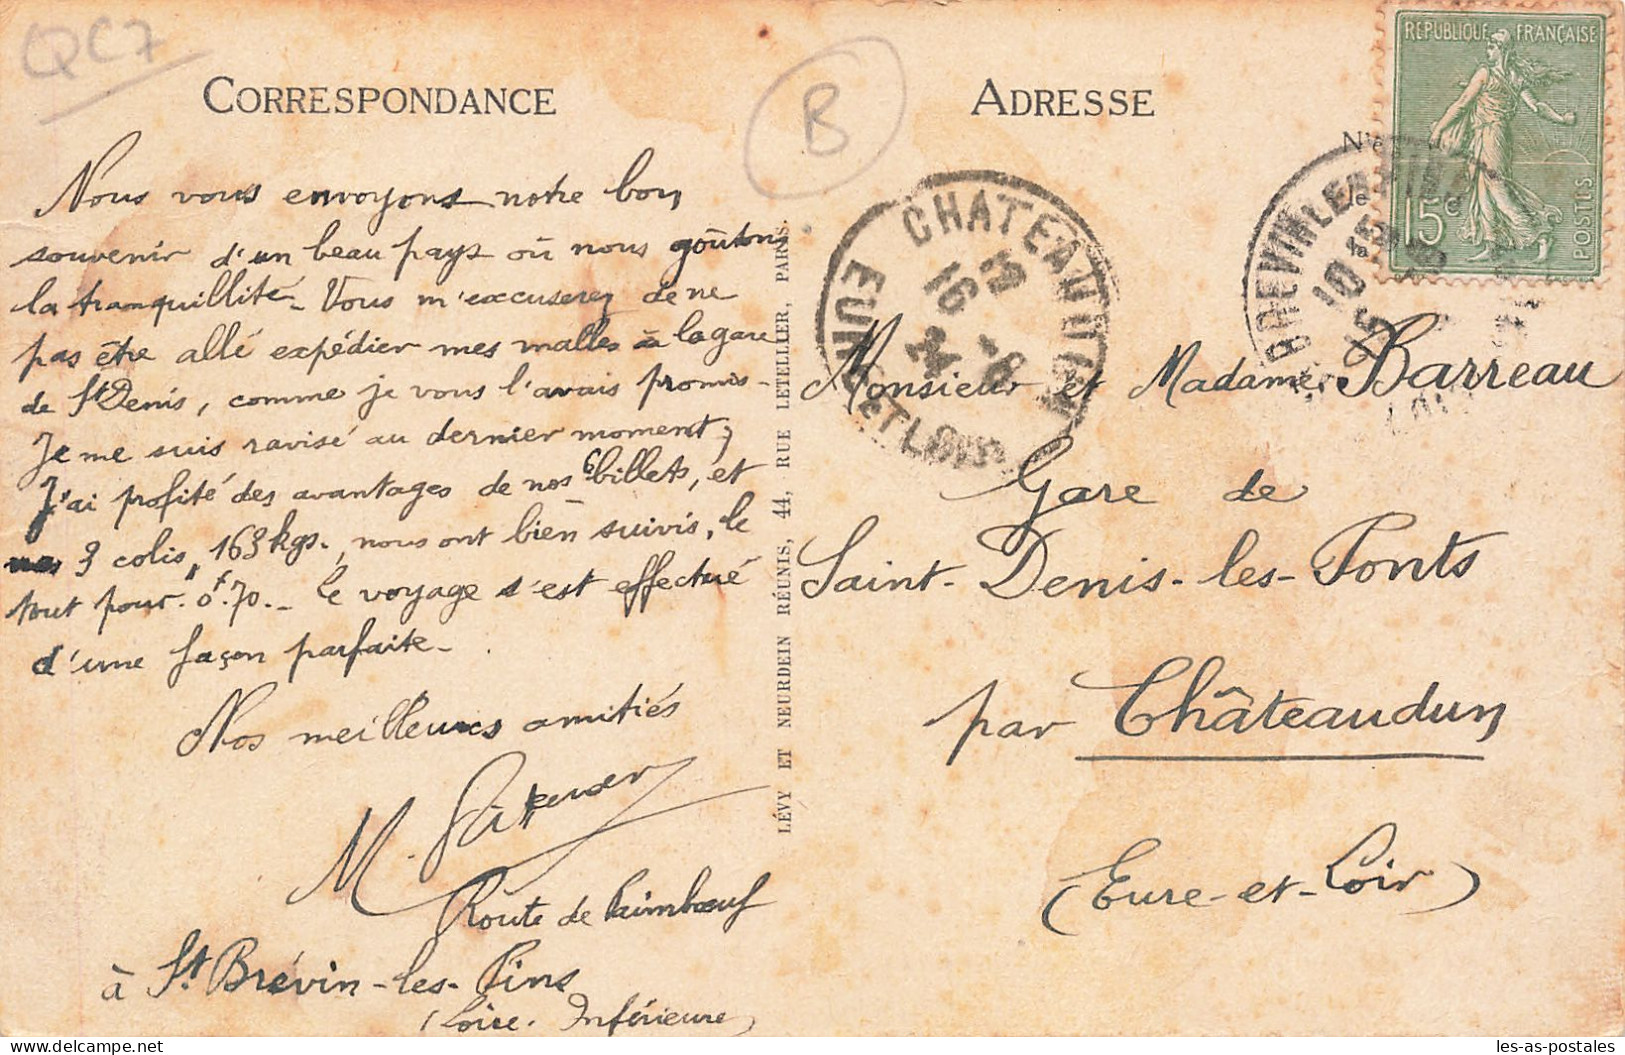 QC7
CORRESPONDANCE
B
ADRESSE
REPUBLIQUE FRANÇAISE
15c
POSTES
Nous vous envoyons notre bon
souvenir d'un beau pays où nous goûtons
la tranquillité. Vous m'excuserez de ne
pas être allé expédier mes malles à la gare
de St Denis, comme je vous l'avais promis-
Je me suis ravisé au dernier moment;
J'ai profité des avantages de nos 6 billets, et
nos 3 colis, 163 kgs., nous ont bien suivis, le
tout pour 0f.70.- Le voyage s'est effectué
d'une façon parfaite.
Nos meilleures amitiés
M.
Route de Paimboeuf
à St. Brévin-les-Pins
(Loire-Inférieure)
LÉVY ET NEURDEIN RÉUNIS, 44, RUE LETELLIER, PARIS.
CHATEAUDUN
16 -8
24
EURE ET LOIR
BREVIN LES PINS
Monsieur et Madame Barreau
Gare de
Saint-Denis-les-Ponts
par Châteaudun
(Eure-et-Loir)
les-as-postales